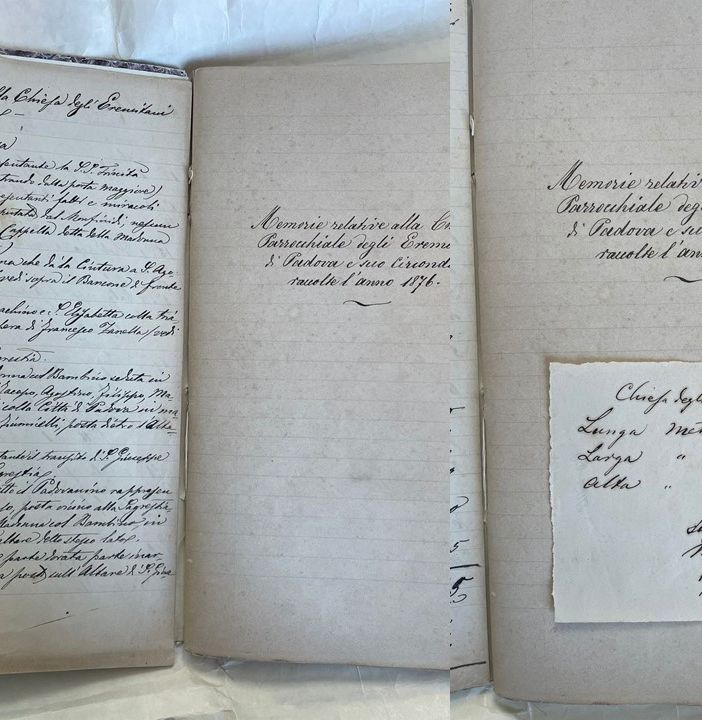 lla Chiesa degli Eremitani
entante la S.S. Trinità
trando dalla porta maggiore)
esentanti fatti e miracoli
Cappella detta della Madonna
ra che dà la Cintura a S. Ago
vedi sopra il Bancone di fronte
achino e S. Elisabetta colla
pera di Francesco Zanella (vedi
onna col Bambino seduta in
Jacopo, Agostino, Filippo, Ma
colla Città di Padova in ma
posta dietro l'Alta
tante il transito di S. Giuseppe
agrestia
tto il Padovanino rappresen
o, posta vicino alla Sagrestia
Madonna col Bambino, in
altare dello stesso lato,
e parte dorata parte mar
a posta sull'Altare di S. Giu
Memorie relative alla Ch
Parrocchiale degli Erem
di Padova e suo Circond
raccolte l'anno 1876.
5
5
Memorie relativ
Parrocchiale deg
di Padova e su
raccolte l'an
Chiesa degl
Lunga Met
Larga "
Alta "